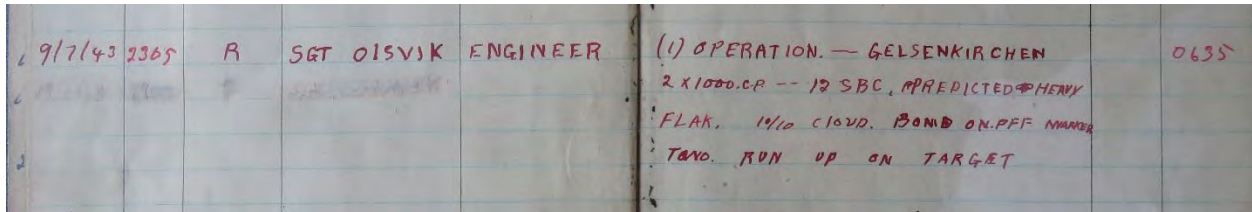 9/7/43 2305 R SGT OISVIK ENGINEER (1) OPERATION. — GELSENKIRCHEN 0635
2 X 1000.CP -- 12 SBC, PREDICTED HEAVY
FLAK. 10/10 CLOUD. BOMB ON.PFF MARKER
TWO. RUN UP ON TARGET